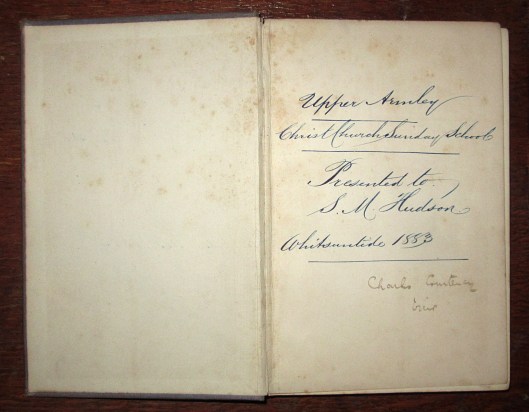 Upper Armley
Christ Church Sunday School
Presented to
S. M Hudson
Whitsuntide 1883
Charles Courtenay